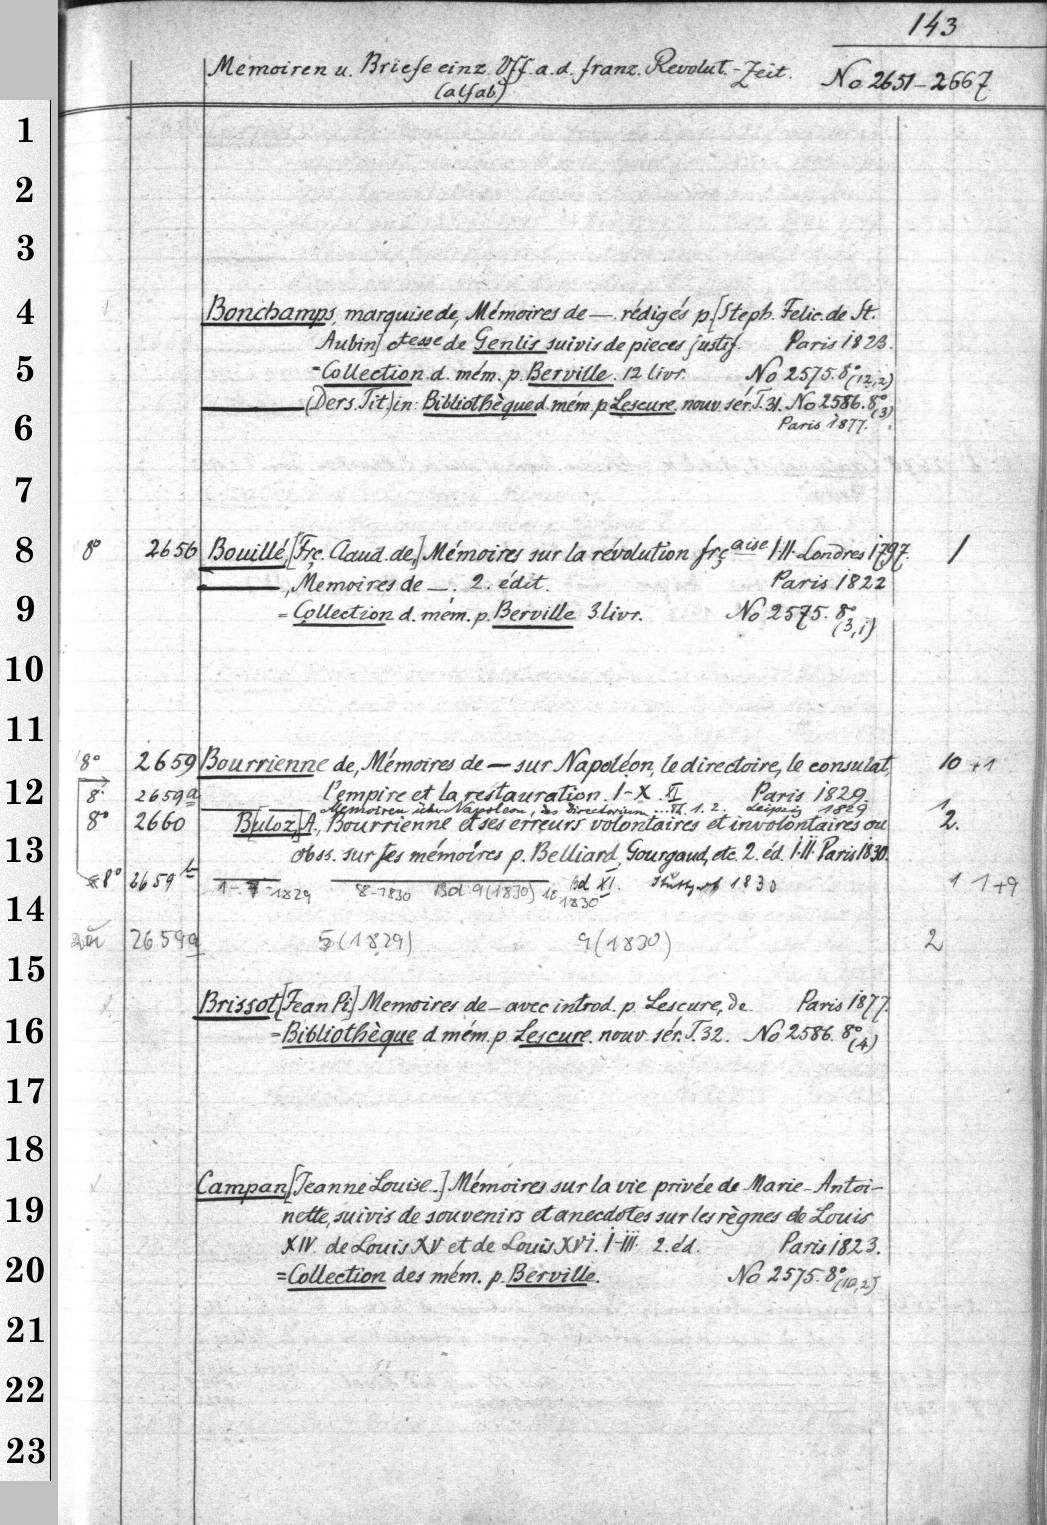 143
Memoiren u. Briefe einz. Off. a. d. franz. Revolut.-Zeit. No 2651–2667
(alfab)
1
2
3
4
Bonchamps, marquise de, Mémoires de — rédigés p. [Steph. Felic. de St.
Aubin] ctesse de Genlis suivis de pieces justif. Paris 1823.
5
= Collection d. mém. p. Berville. 12 livr. No 2575. 8° (12,2)
(Ders. Tit.) in: Bibliothèque d. mém. p. Lescure. nouv. sér. T. 31. No 2586. 8° (3)
6
Paris 1877.
7
8
8° 2656 Bouillé, [Frç. Claud. de,] Mémoires sur la révolution frçaise I·II· Londres 1797. 1
——, Memoires de —. 2. édit. Paris 1822
9
= Collection d. mém. p. Berville 3 livr. No 2575. 8° (3,1)
10
11
8° 2659 Bourrienne de, Mémoires de — sur Napoléon, le directoire, le consulat, 10 +1
12
8° 2659a l'empire et la restauration. I–X. XI Paris 1829
Memoiren über Napoleon, das Directorium ... VI. 1. 2. Leipzig 1829 1
8° 2660 B[uloz,] A., Bourrienne et ses erreurs volontaires et involontaires ou 2.
13
obss. sur ses mémoires p. Belliard, Gourgaud, etc. 2. éd. I·II· Paris 1830.
8° 2659b 1–7=1829 8–1830 Bd. 9 (1830) 10 1830 Bd XI. Stuttgart 1830 1 1+9
14
zu 2659a 5 (1829) 9 (1830) 2
15
Brissot [Jean Pi.] Memoires de — avec introd. p. Lescure, de. Paris 1877.
16
= Bibliothèque d. mém. p. Lescure. nouv. sér. T. 32. No 2586. 8° (4)
17
18
Campan, [Jeanne Louise..] Mémoires sur la vie privée de Marie-Antoi–
19
nette, suivis de souvenirs et anecdotes sur les règnes de Louis
XIV. de Louis XV et de Louis XVI. I–III. 2. éd. Paris 1823.
20
= Collection des mém. p. Berville. No 2575. 8° (10,2)
21
22
23